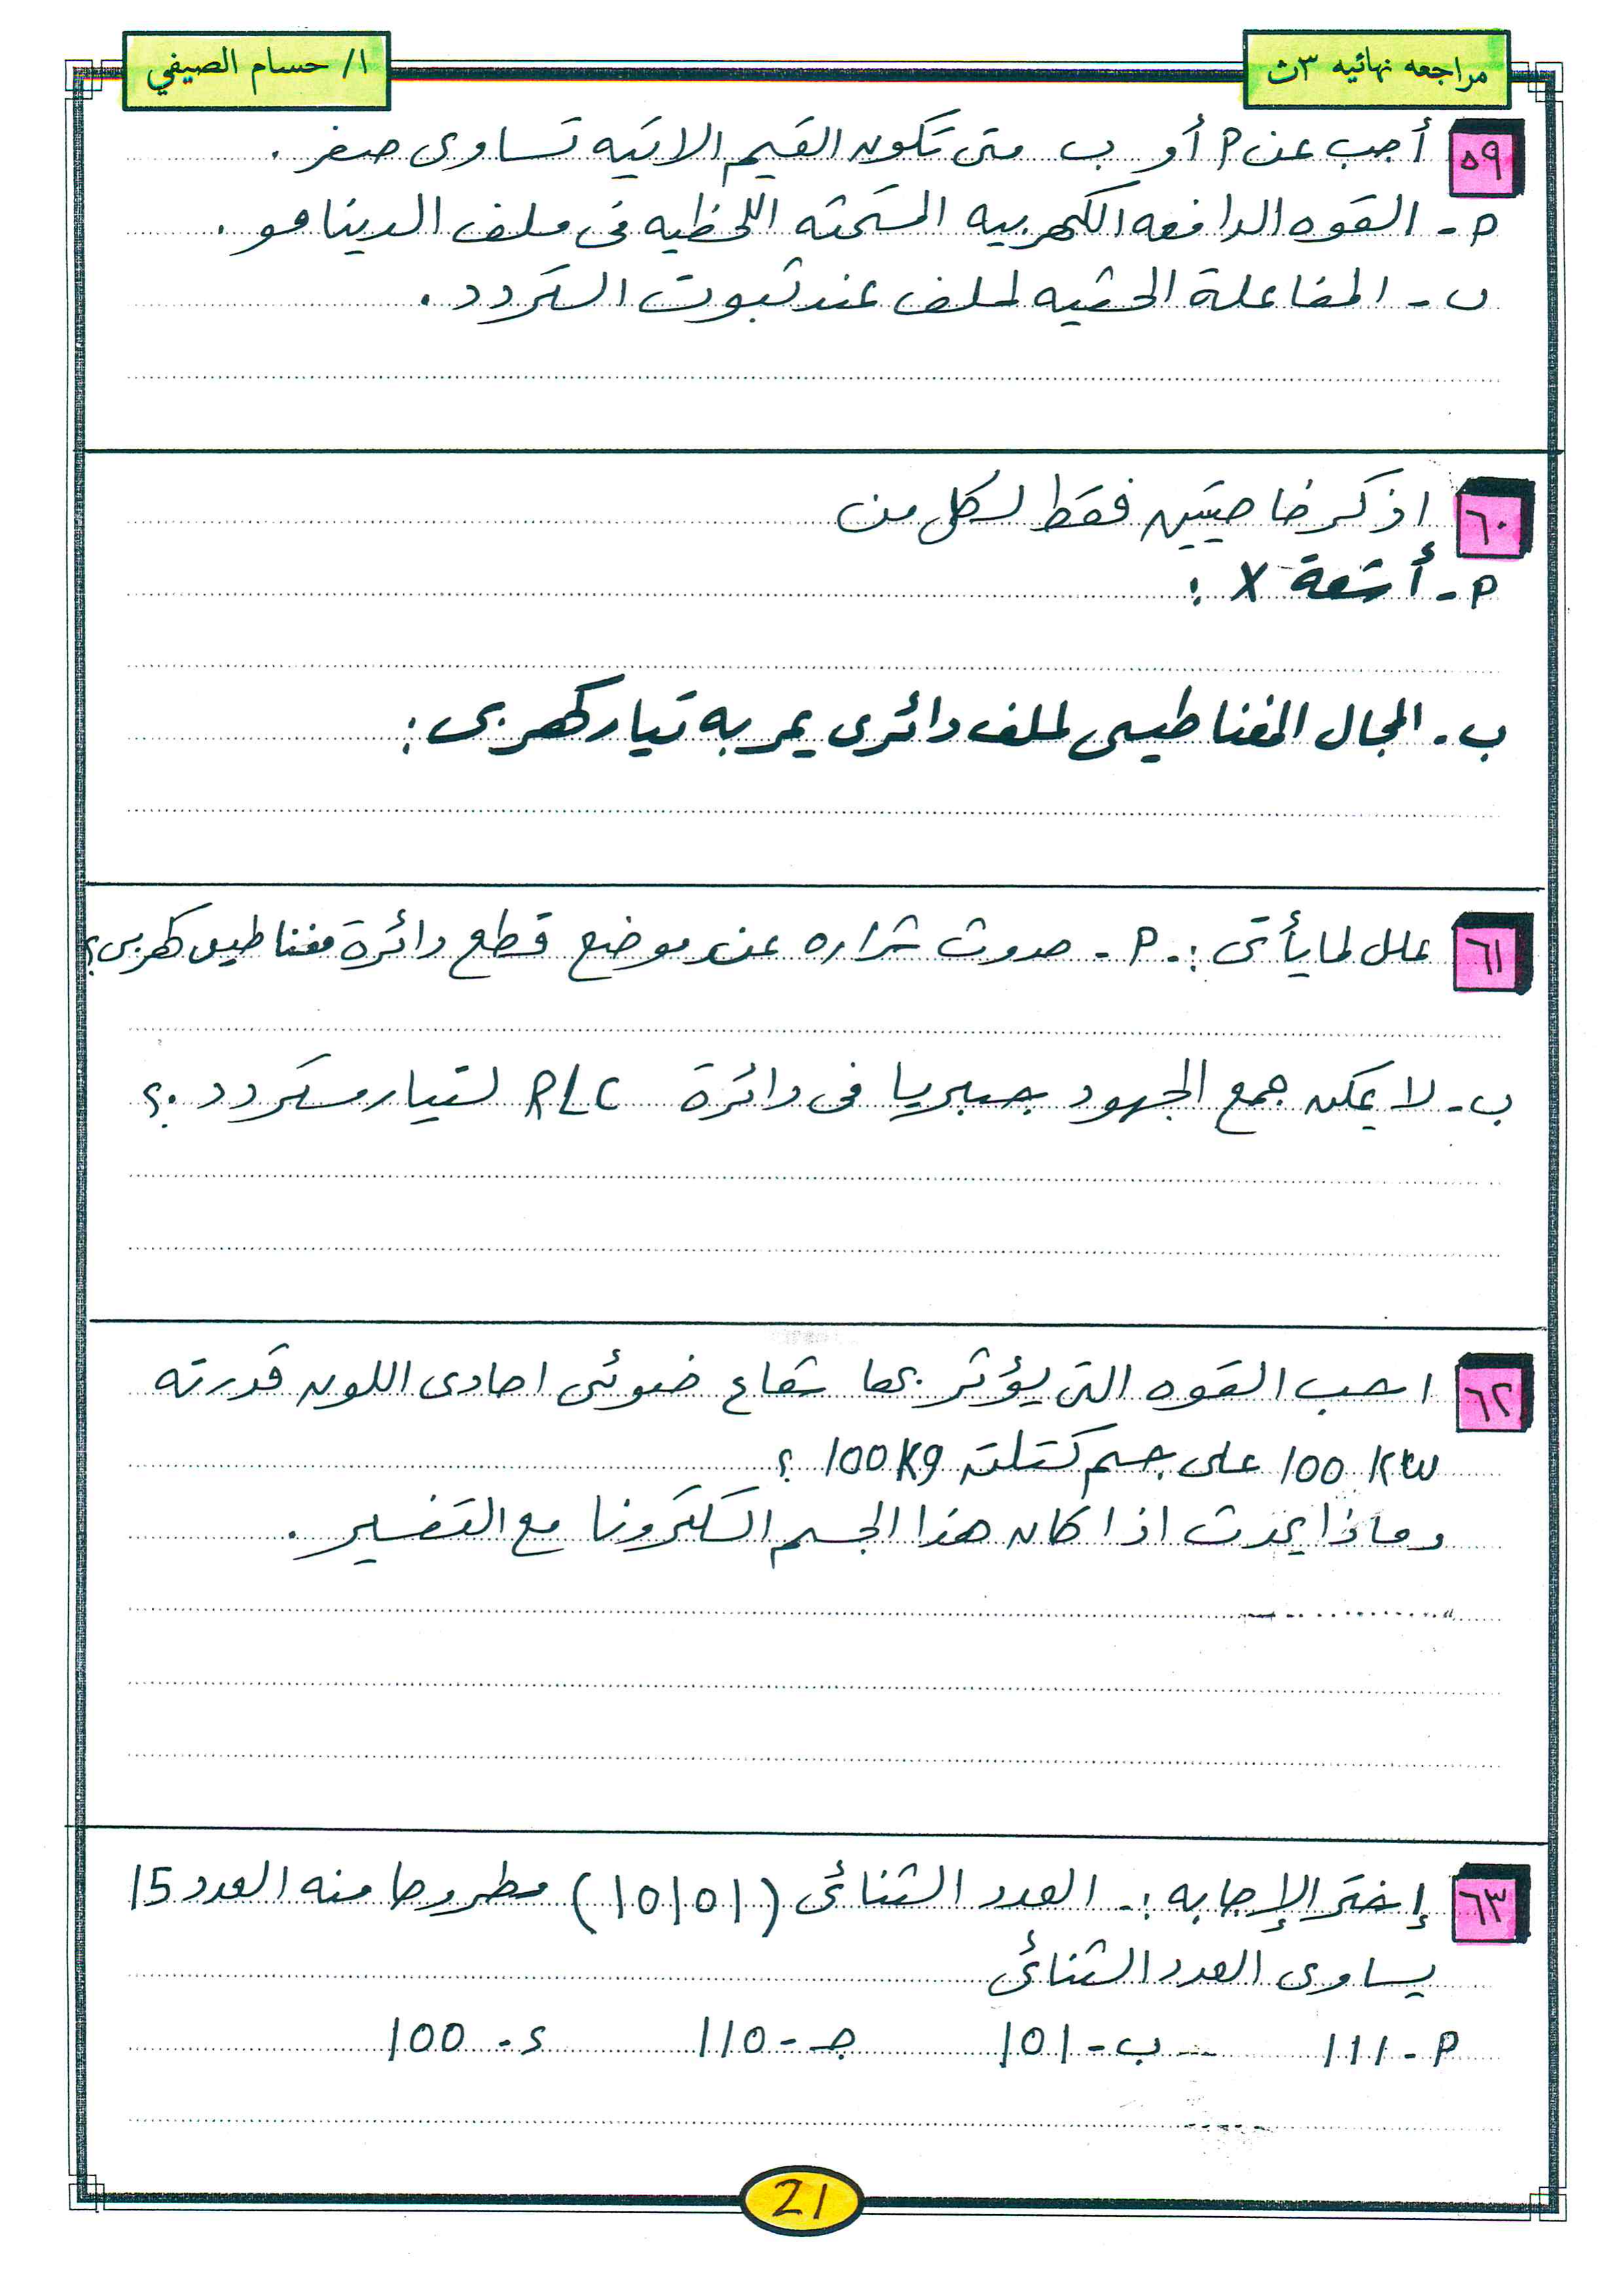 مراجعه نهائيه ٣ث
ا/ حسام الصيفي
٥٩ أجب عن P أو ب متى تكون القيم الاتيه تساوى صفر .
P - القوه الدافعه الكهربيه المستحثه اللحظيه فى ملف الدينامو .
ب - المفاعلة الحثيه لملف عند ثبوت التردد .
٦٠ اذكر خاصيتين فقط لكل من
P - أشعة X :
ب - المجال المغناطيسى لملف دائرى يمر به تيار كهربى :
٦١ علل لما يأتى :- P - حدوث شراره عند موضع قطع دائرة مغناطيس كهربى ؟
ب - لا يمكن جمع الجهود جبريا فى دائرة RLC لتيار متردد .؟
٦٢ احسب القوه التى يؤثر بها شعاع ضوئى احادى اللون قدرته
100 KW على جسم كتلته 100Kg ؟
وماذا يحدث اذا كان هذا الجسم الكترونا مع التفسير .
٦٣ إختر الإجابه :- العدد الثنائى (10101) مطروحا منه العدد 15
يساوى العدد الثنائى
P - 111 ب - 101 جـ - 110 د - 100
21